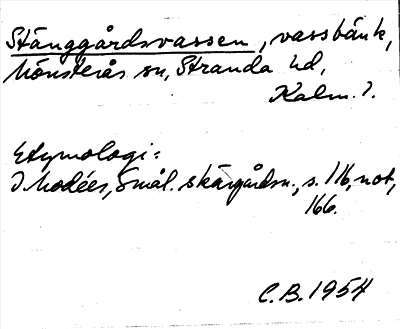 Stånggårdsvassen, vassbänk,
Mönsterås sn, Stranda hd,
Kalm. l.
Etymologi:
I. Modéer, Smål. skärgårdsn., s. 116, not,
166.
C.B. 1954